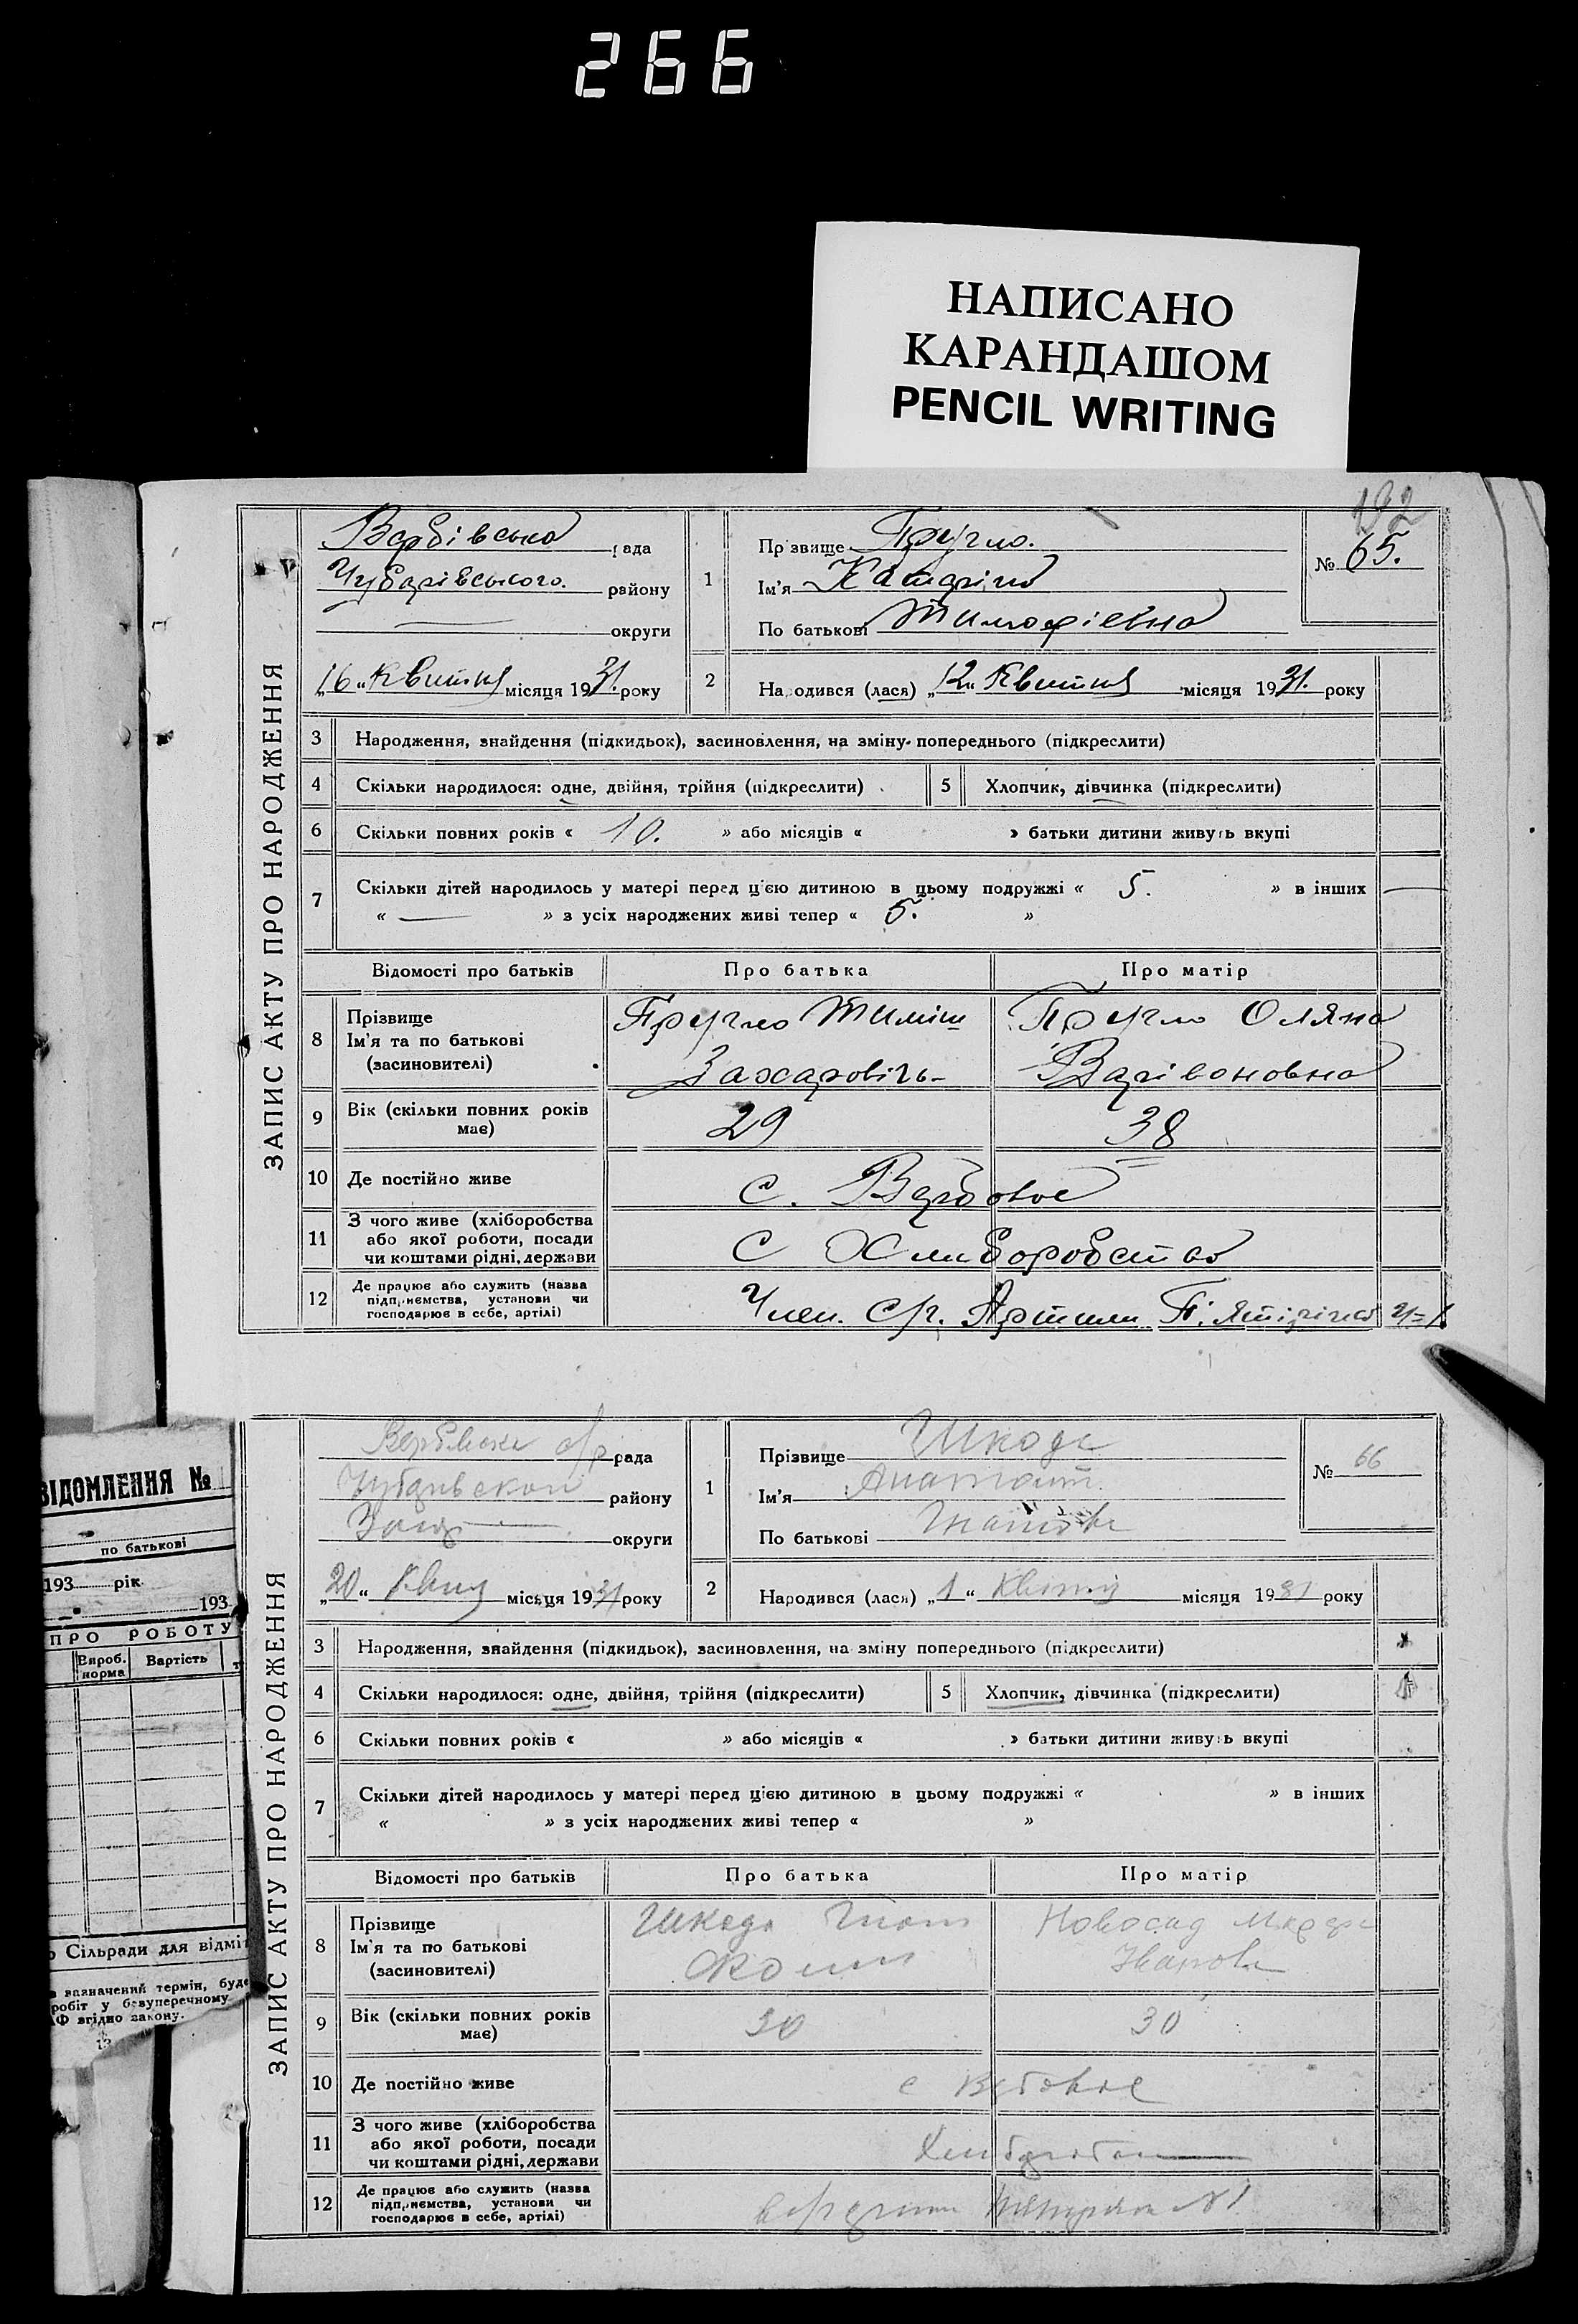 266
НАПИСАНО
КАРАНДАШОМ
PENCIL WRITING
192
ЗАПИС АКТУ ПРО НАРОДЖЕННЯ
Вербівська рада
Чубарівського району
округи
„16“ Квітня місяця 1931. року
1
Прізвище Пругло.
Ім'я Катаріна
По батькові Тимофієвна
№ 65.
2 Народився (лася) „12“ Квітня місяця 1931. року
3 Народження, знайдення (підкидьок), засиновлення, на зміну попереднього (підкреслити)
4 Скільки народилося: одне, двійня, трійня (підкреслити) 5 Хлопчик, дівчинка (підкреслити)
6 Скільки повних років « 10. » або місяців « » батьки дитини живуть вкупі
7 Скільки дітей народилось у матері перед цією дитиною в цьому подружжі « 5. » в інших
« — » з усіх народжених живі тепер « 5. »
Відомості про батьків Про батька Про матір
8 Прізвище
Ім'я та по батькові
(засиновителі)
Пругло Тиміш
Захаровіч
Пругло Оляна
Варівоновна
9 Вік (скільки повних років має) 29 38
10 Де постійно живе с. Вербовое
11 З чого живе (хліборобства
або якої роботи, посади
чи коштами рідні, держави
С Хлиборобства
12 Де працює або служить (назва
підприємства, установи чи
господарює в себе, артілі)
Член. С/г. Артили
ЗАПИС АКТУ ПРО НАРОДЖЕННЯ
рада
району
округи
„20“ місяця 1931 року
1
Прізвище Шкода
Ім'я
По батькові
№ 66
2 Народився (лася) „1“ місяця 1931 року
3 Народження, знайдення (підкидьок), засиновлення, на зміну попереднього (підкреслити)
4 Скільки народилося: одне, двійня, трійня (підкреслити) 5 Хлопчик, дівчинка (підкреслити)
6 Скільки повних років « » або місяців « » батьки дитини живуть вкупі
7 Скільки дітей народилось у матері перед цією дитиною в цьому подружжі « » в інших
« » з усіх народжених живі тепер « »
Відомості про батьків Про батька Про матір
8 Прізвище
Ім'я та по батькові
(засиновителі)
Шкода
Новосад
Іванова
9 Вік (скільки повних років має) 30 30
10 Де постійно живе
11 З чого живе (хліборобства
або якої роботи, посади
чи коштами рідні, держави
12 Де працює або служить (назва
підприємства, установи чи
господарює в себе, артілі)
ВІДОМЛЕННЯ №
по батькові
193 рік
193
ПРО РОБОТУ
Вироб. норма Вартість
Сільради для відмі
зазначений термін, буде
робіт у безуперечному
згідно закону.